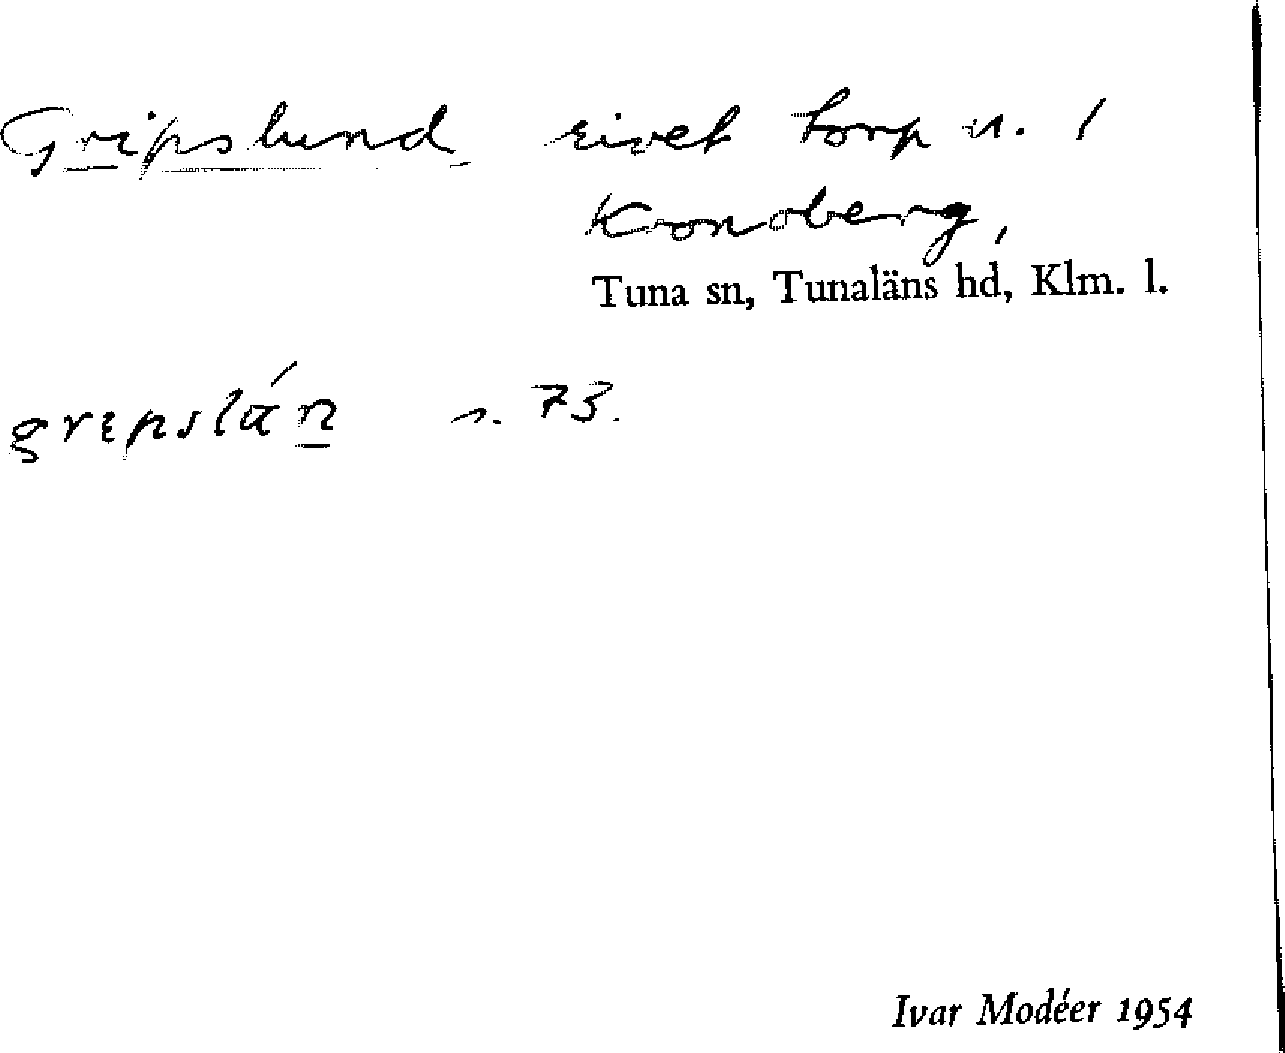 Gripslund rivet torp u. 1
Kronoberg,
Tuna sn, Tunaläns hd, Klm. l.
grepslán s. 73.
Ivar Modéer 1954